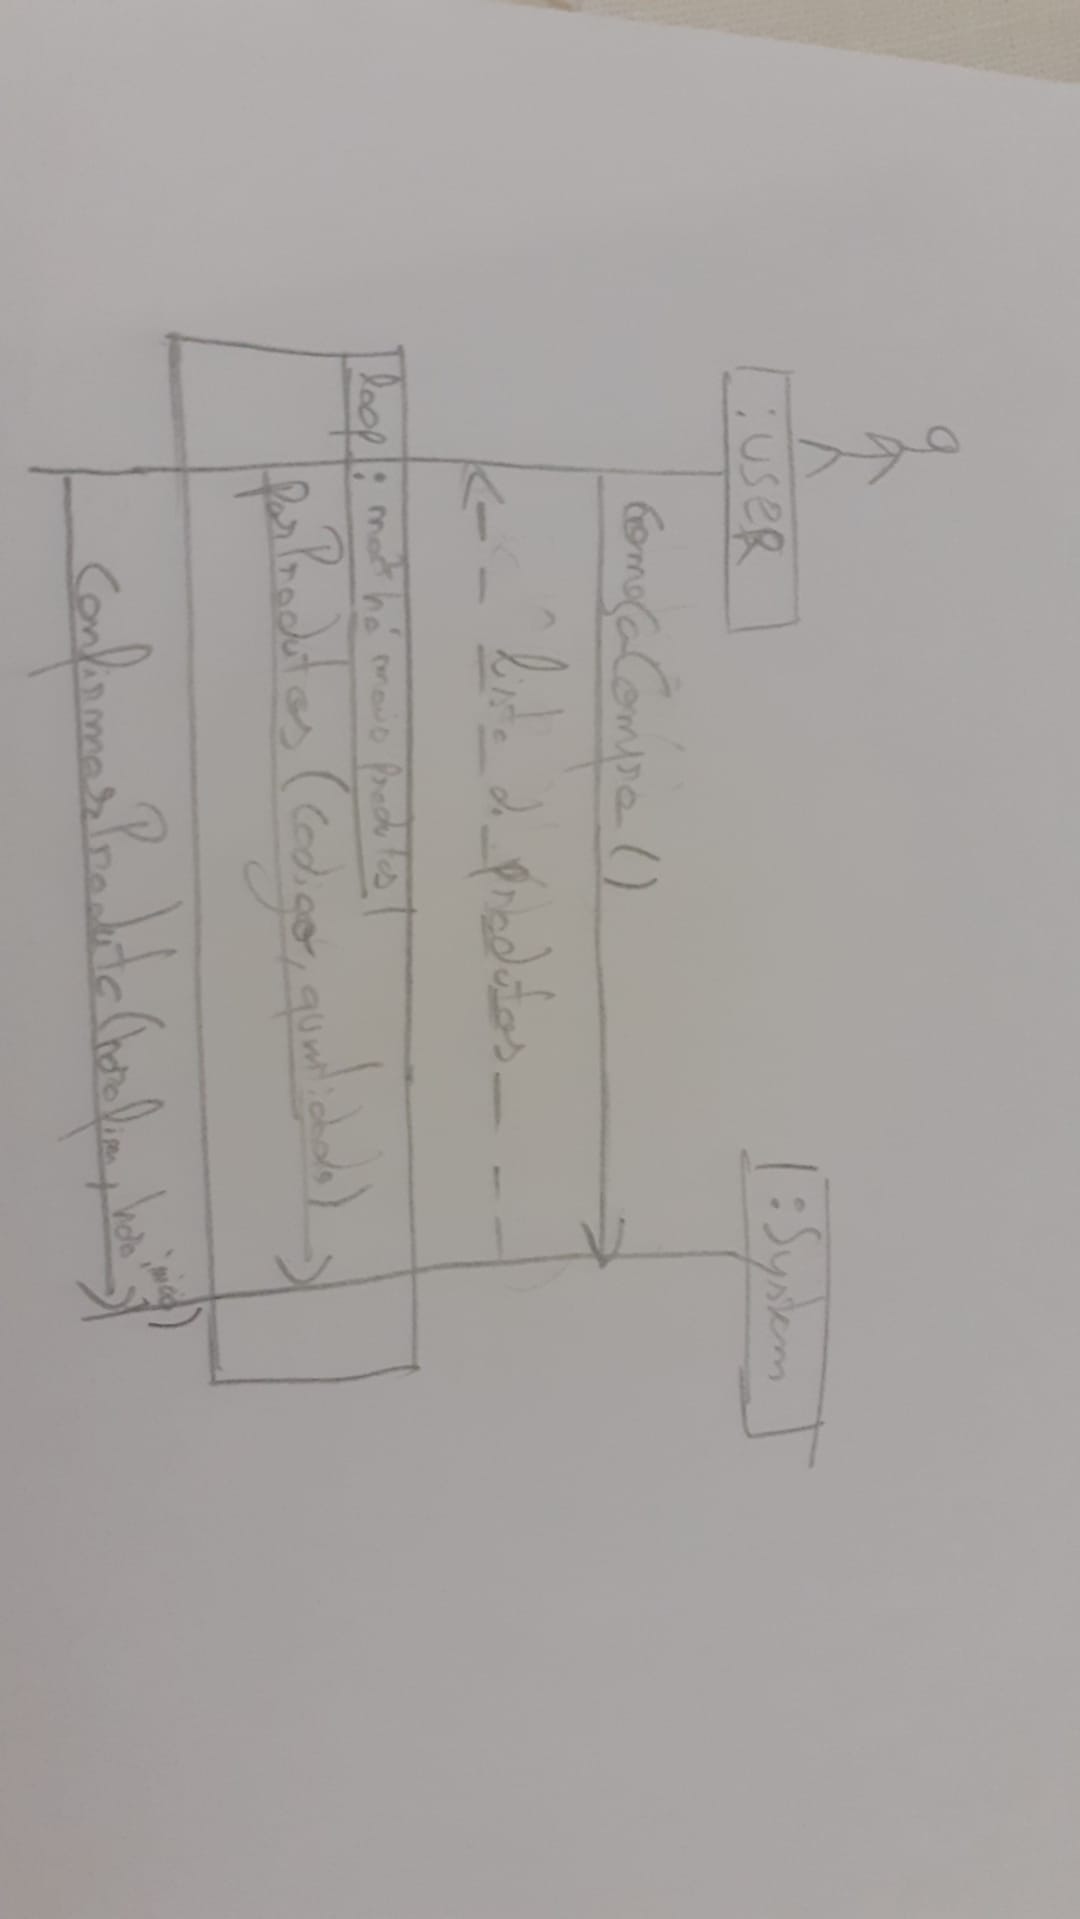 :USER
:System
começaCompra ()
lista de produtos
loop : há mais produtos
porProdutos (codigo, quantidade)
ConfirmarProduto (horafim, hora inicio)